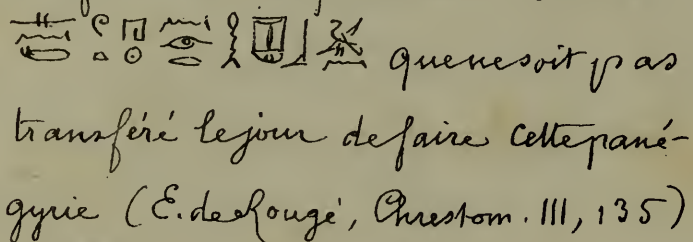 que ne soit pas
transféré le jour de faire cette pané-
gyrie (E. de Rougé, Chrestom. III, 135)